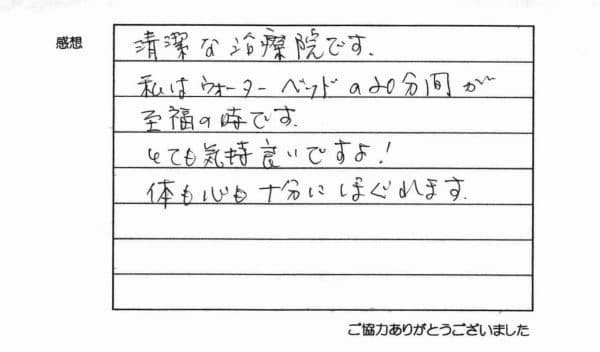 感想
清潔な治療院です.
私はウォーターベッドの20分間が
至福の時です.
とても気持良いですよ!
体も心も十分にほぐれます.
ご協力ありがとうございました